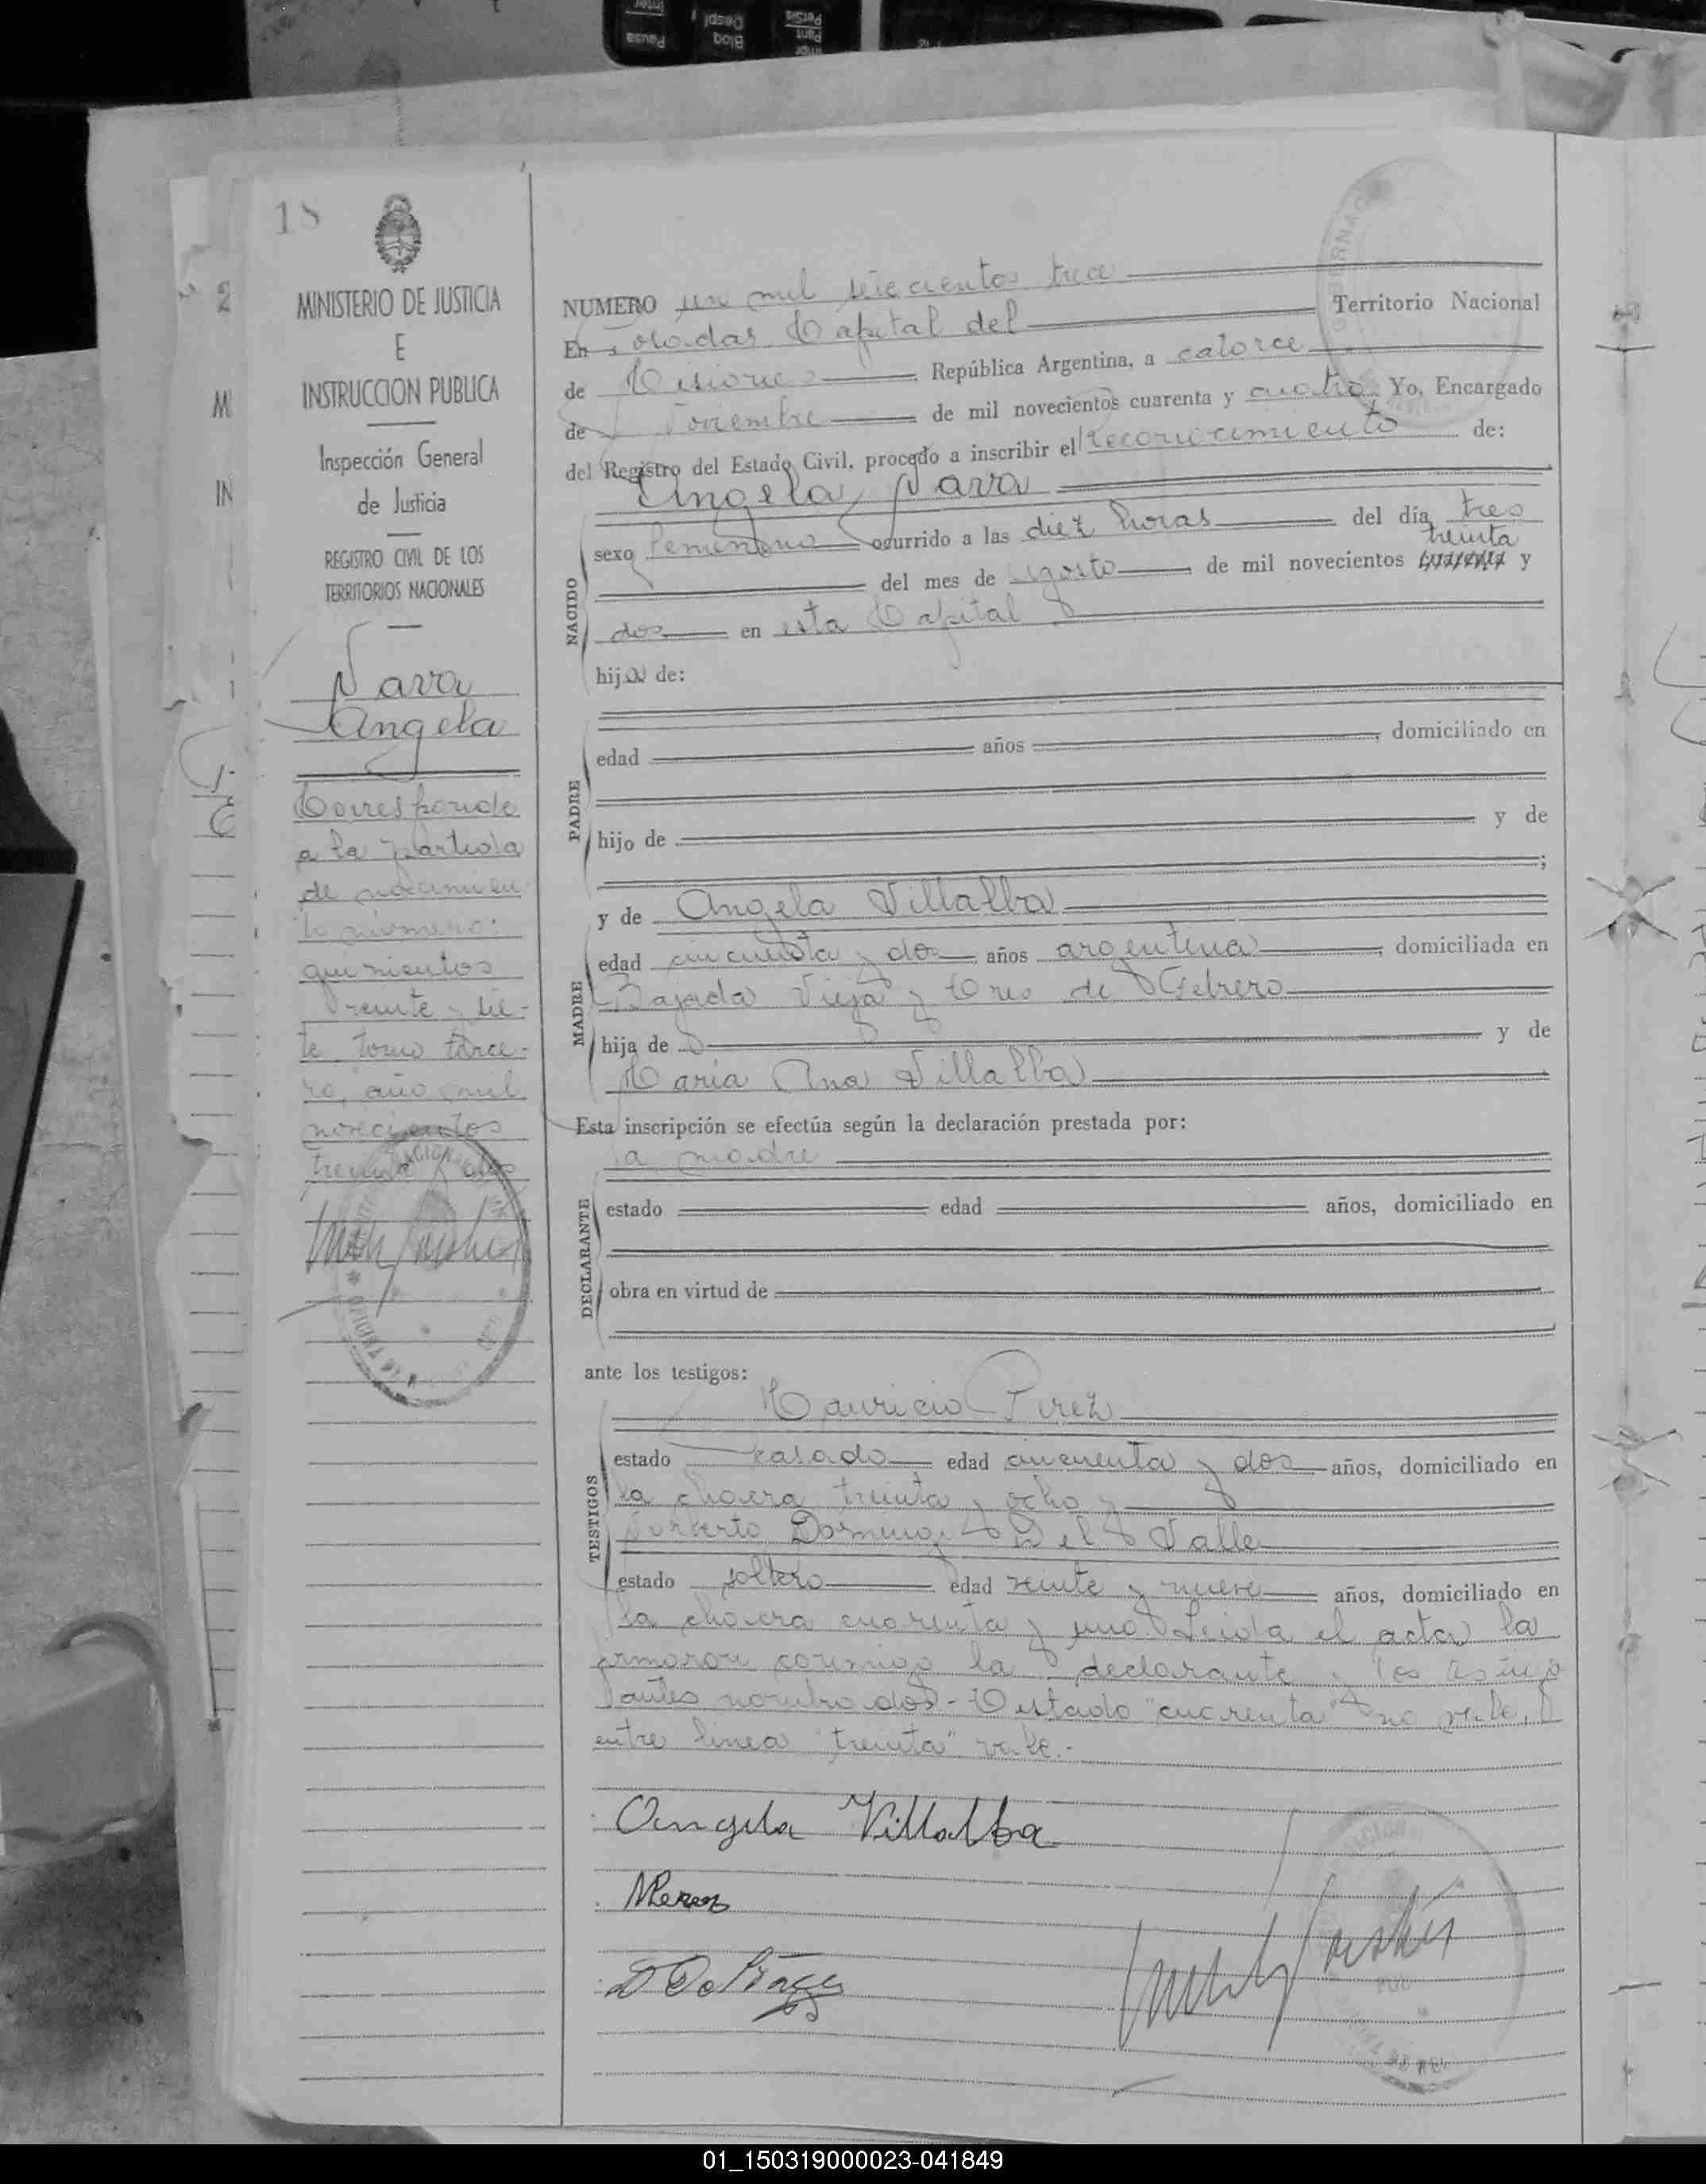 18
MINISTERIO DE JUSTICIA
E
INSTRUCCION PUBLICA
Inspección General
de Justicia
REGISTRO CIVIL DE LOS
TERRITORIOS NACIONALES
Nava
Angela
Corresponde
a la partida
de nacimien
to número:
quinientos
veinte y sie-
te tomo terce-
ro, año mil
novecientos
treinta dos
NUMERO un mil setecientos trece
En Posadas Capital del Territorio Nacional
de Misiones República Argentina, a catorce
de Noviembre de mil novecientos cuarenta y cuatro, Yo, Encargado
del Registro del Estado Civil, procedo a inscribir el reconocimiento de:
Angela Nava
NACIDO
sexo femenino ocurrido a las diez horas del día tres
treinta
del mes de agosto de mil novecientos y
dos en esta Capital
hija de:
PADRE
edad años domiciliado en
hijo de y de
y de Angela Villalba
MADRE
edad cincuenta y dos años argentina domiciliada en
Bajada Vieja y Tres de Febrero
hija de y de
María Ana Villalba
Esta inscripción se efectúa según la declaración prestada por:
la madre
DECLARANTE
estado edad años, domiciliado en
obra en virtud de
ante los testigos:
Mauricio Perez
TESTIGOS
estado casado edad cincuenta y dos años, domiciliado en
la chacra treinta y ocho y
Norberto Domingo Del Valle
estado soltero edad veinte y nueve años, domiciliado en
la chacra cuarenta y uno. Leida el acta la
firmaron conmigo la declarante y los testigos
antes nombrados.- Testado "cuarenta" no vale,
entre linea "treinta" vale.-
Angela Villalba
MPerez
01_150319000023-041849